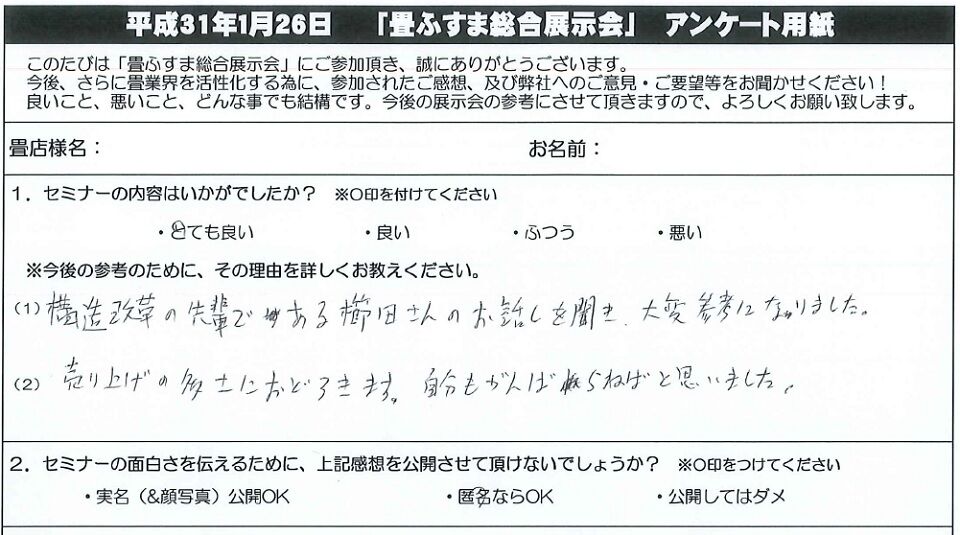 平成31年1月26日 「畳ふすま総合展示会」 アンケート用紙
このたびは「畳ふすま総合展示会」にご参加頂き、誠にありがとうございます。
今後、さらに畳業界を活性化する為に、参加されたご感想、及び弊社へのご意見・ご要望等をお聞かせください！
良いこと、悪いこと、どんな事でも結構です。今後の展示会の参考にさせて頂きますので、よろしくお願い致します。
畳店様名： お名前：
1．セミナーの内容はいかがでしたか？ ※○印を付けてください
・とても良い ・良い ・ふつう ・悪い
※今後の参考のために、その理由を詳しくお教えください。
(1) 構造改革の先輩である櫛田さんのお話しを聞き、大変参考になりました。
(2) 売り上げの多さにおどろきます。自分もがんばらねばと思いました。
2．セミナーの面白さを伝えるために、上記感想を公開させて頂けないでしょうか？ ※○印をつけてください
・実名（&顔写真）公開OK ・匿名ならOK ・公開してはダメ